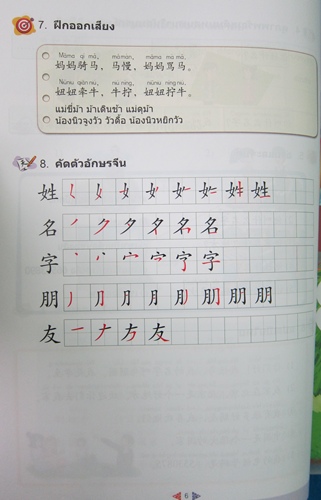 7. ฝึกออกเสียง
Māma qí mǎ, mǎ màn, māma mà mǎ.
妈妈骑马，马慢，妈妈骂马。
Niūniu qiān niú, niú nìng, niūniu nǐng niú.
妞妞牵牛，牛拧，妞妞拧牛。
แม่ขี่ม้า ม้าเดินช้า แม่ดุม้า
น้องนิวจูงวัว วัวดื้อ น้องนิวหยิกวัว
8. คัดตัวอักษรจีน
姓 姓 姓
名 名 名
字 字
朋 朋 朋 朋
友 友
6